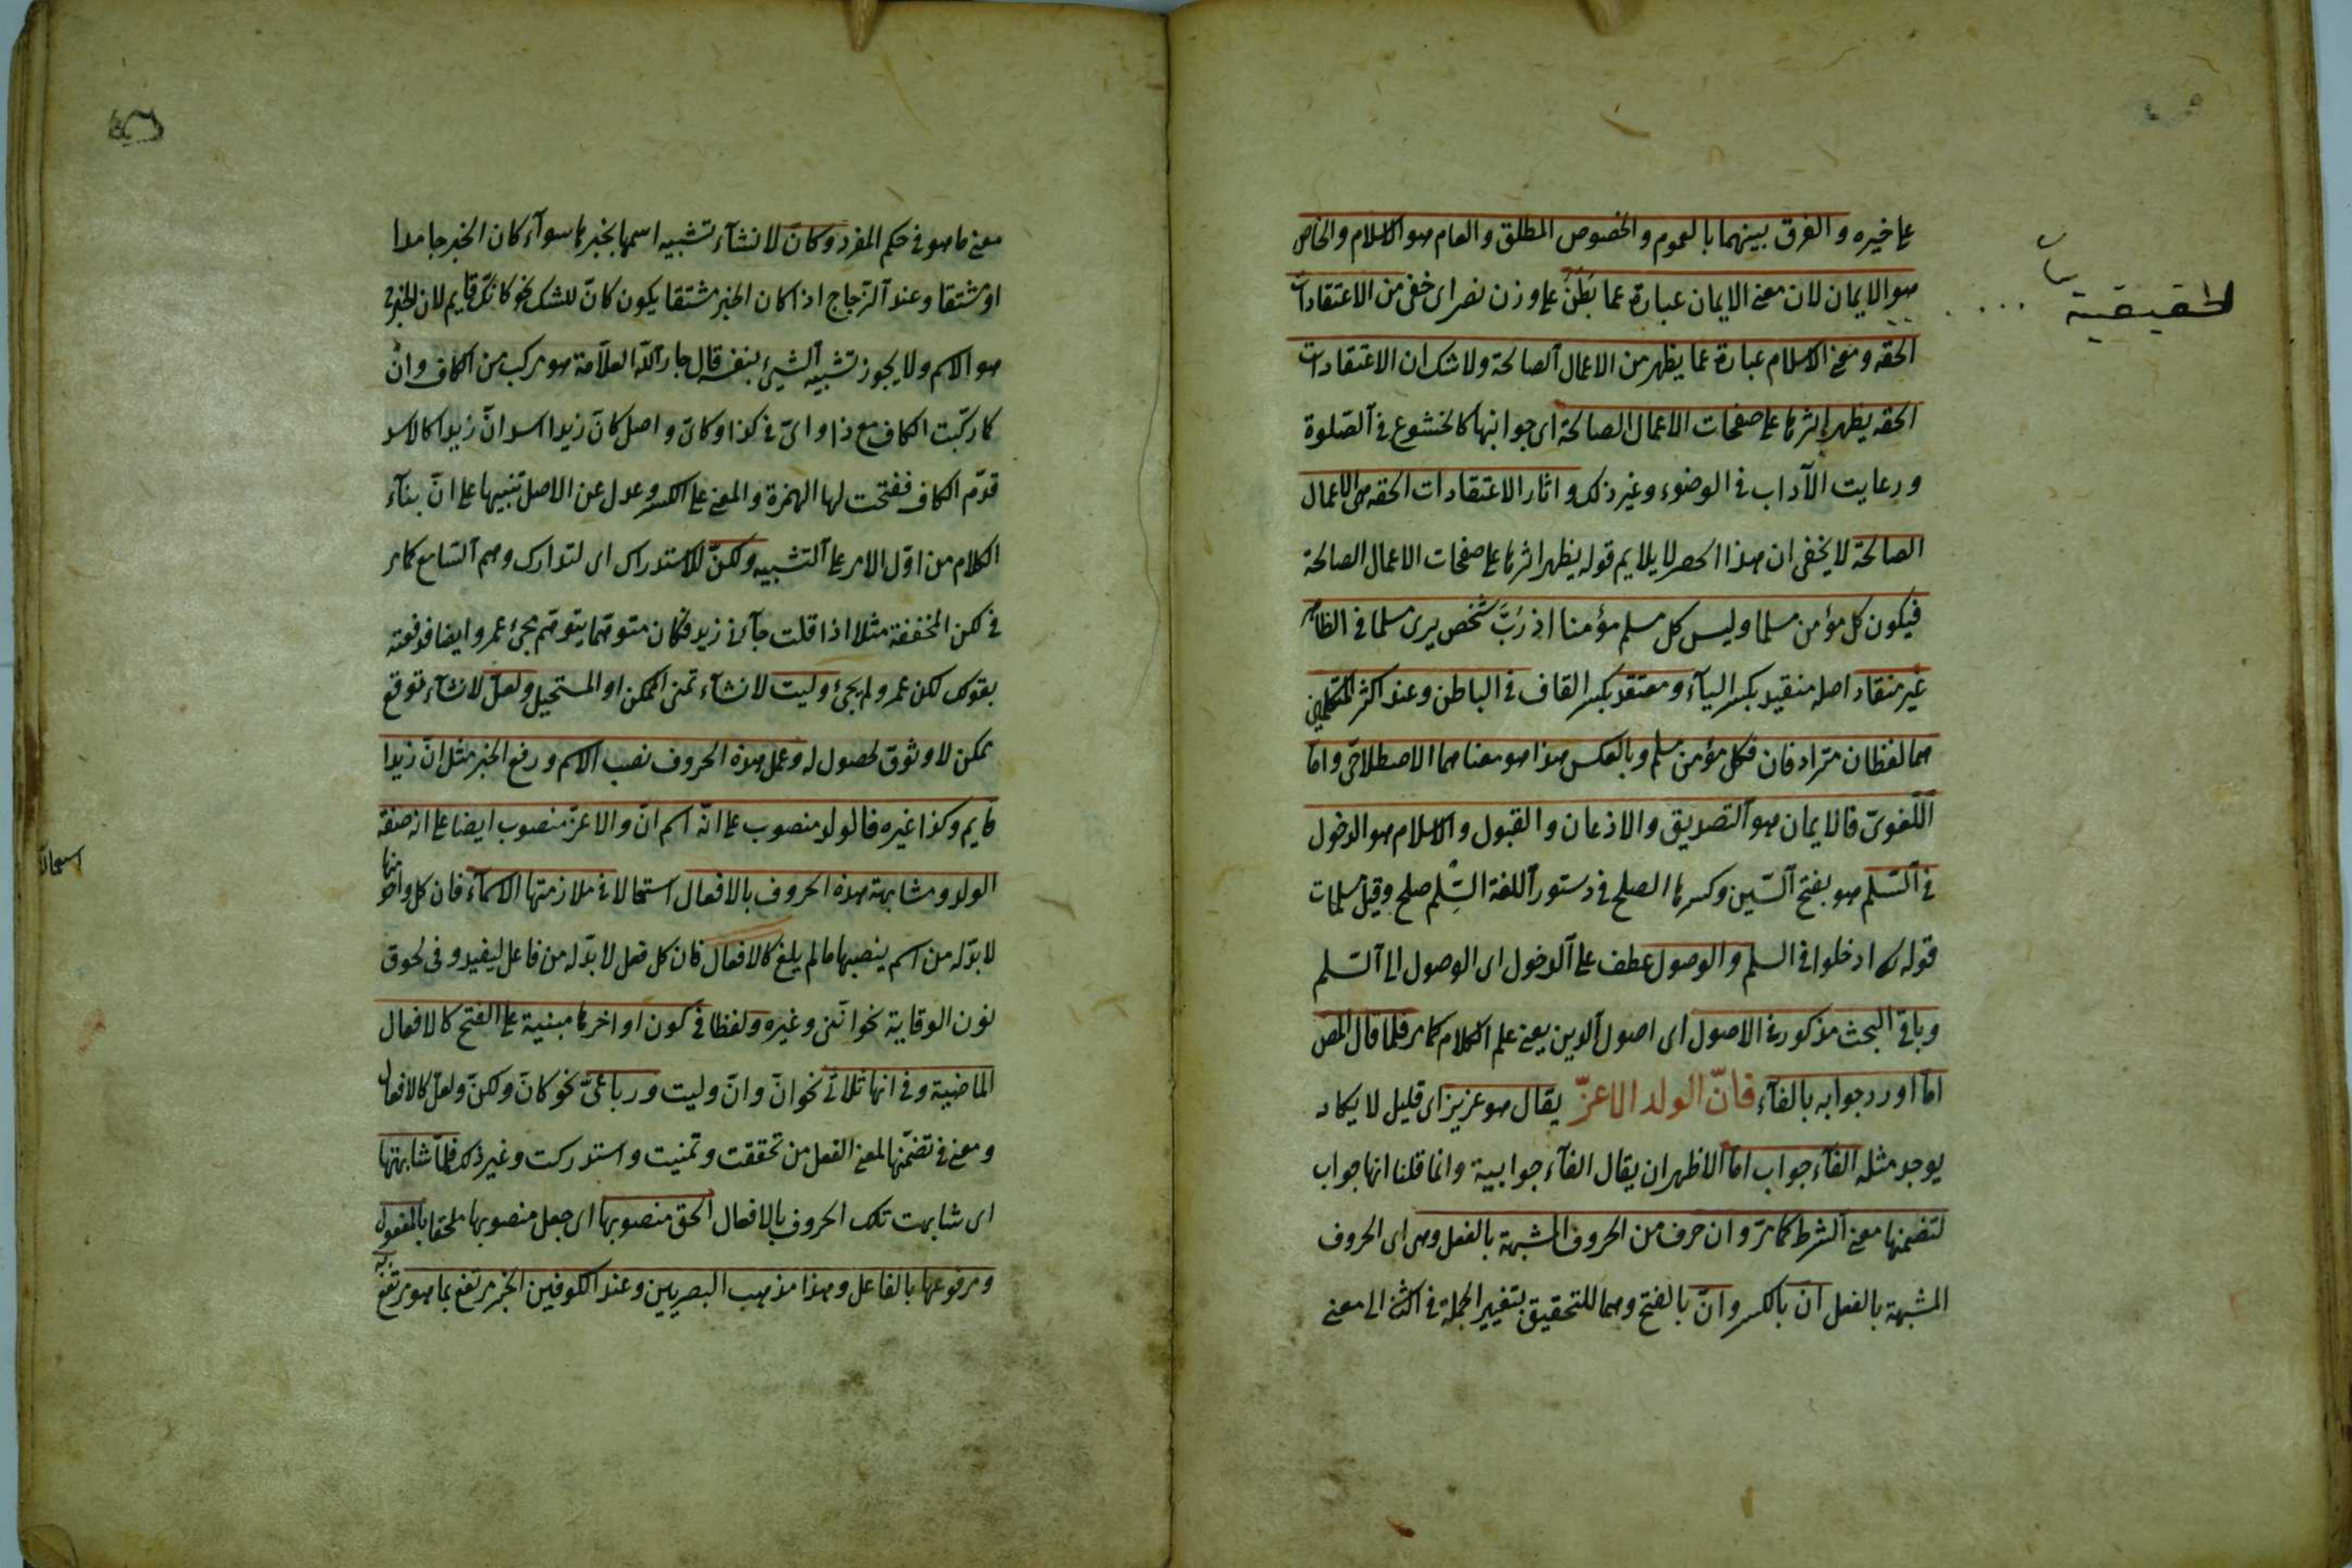 على خيره و الفرق بينهما بالعموم والخصوص المطلق والعام هو الاسلام والخاص
هو الايمان لان معنى الايمان عبارة عما بَطَنَ على وزن نصر اى خفى من الاعتقادات
الحقه ومعنى الاسلام عبارة عما يظهر من الاعمال الصالحة ولا شك ان الاعتقادات
الحقه يظهر اثرها على صفحات الاعمال الصالحة اى جوانبها كالخشوع فى الصلوة
ورعايت الآداب فى الوضوء وغير ذلك و اثار الاعتقادات الحقه هى الاعمال
الصالحة لا يخفى ان هذا الحصر لا يلايم قوله يظهر اثرها على صفحات الاعمال الصالحة
فيكون كل مؤمن مسلما وليس كل مسلم مؤمنا اذ رُبَّ شخص يرى مسلما فى الظاهر
غير منقاد اصله منقيد بكسر اليآء و معتقد بكسر القاف فى الباطن وعند اكثر المتكلمين
هما لفظان مترادفان فكل مؤمن مسلم وبالعكس هذا هو معناهما الاصطلاحىّ واما
اللّغوىّ فالايمان هو التصديق والاذعان والقبول والاسلام هو الدخول
فى السّلم هو بفتح السّين وكسرها الصلح فى دستور اللغة السِّلم صلح وقيل مسلمات
قوله ادخلوا فى السلم والوصول عطف على الدخول اى الوصول الى السّلم
وباقى البحث مذكور فى الاصول اى اصول الدين يعنى علم الكلام كما مر فلما قال المص
امّا اورد جوابه بالفآء فانّ الولد الاعزّ يقال هو عزيز اى قليل لا يكاد
يوجد مثله الفآء جواب امّا الاظهر ان يقال الفآء جوابية وانما قلنا انها جواب
لتضمنها معنى الشرط كما مرّ و ان حرف من الحروف المشبهة بالفعل وهى اى الحروف
المشبهة بالفعل انّ بالكسر وانّ بالفتح وهما للتحقيق بتغيير الجملة فى اكثر الى معنى
الحقيقية
معنى ما هو فى حكم المفرد وكانّ لانشآء تشبيه اسمها بخبرها سوآء كان الخبر جامدا
او مشتقا وعند الزّجاج اذا كان الخبر مشتقا يكون كانّ للشك نحو كانّك قايم لان الخبر
هو الاسم ولا يجوز تشبيه الشيئ بنفسه قال جار اللّه العلاّمة هو مركب من الكاف وانّ
كما ركّبت الكاف مع ذا و اىّ فى كذا وكاىّ و اصل كانّ زيدا اسد انّ زيدا كالاسد
قدّم الكاف ففتحت لها الهمزة والمعنى على الكسر وعدل عن الاصل تنبيها على انّ بنآء
الكلام من اوّل الامر على التشبيه ولكنّ للاستدراك اى لتدارك وهم السّامع كما مر
فى لكن المخففة مثلا اذا قلت جآءنى زيد فكان متوهّما يتوهّم مجئ عمرو ايضا فدفعته
بقولك لكن عمرو لم يجئ وليت لانشآء تمنى الممكن او المستحيل ولعلّ لانشآء توقع
ممكن لا وثوق لحصوله وعمل هذه الحروف نصب الاسم و رفع الخبر مثل انّ زيدا
قايم وكذا غيره فالولد منصوب على انّه اسم انّ والاعزّ منصوب ايضا على انه صفة
الولد ومشابهة هذه الحروف بالافعال استعمالا فى ملازمتها الاسمآء فان كل واحد منها
لا بدّ له من اسم ينصبها ما لم يلغ كالافعال فان كل فعل لا بدّ له من فاعل ليفيد و فى لحوق
نون الوقاية نحو انّنى وغيره ولفظا فى كون اواخرها مبنية على الفتح كالافعال
الماضية وفى انها ثلاثىّ نحو انّ وانّ وليت ورباعىّ نحو كانّ ولكنّ ولعلّ كالافعال
ومعنى فى تضمّنها لمعنى الفعل من تحققت وتمنيت واستدركت وغير ذلك فلمّا شابهتها
اى شابهت تلك الحروف بالافعال الحق منصوبها اى جعل منصوبها ملحقا بالمفعول
ومرفوعها بالفاعل وهذا مذهب البصريين وعند الكوفين الخبر مرتفع بما هو مرتفع به